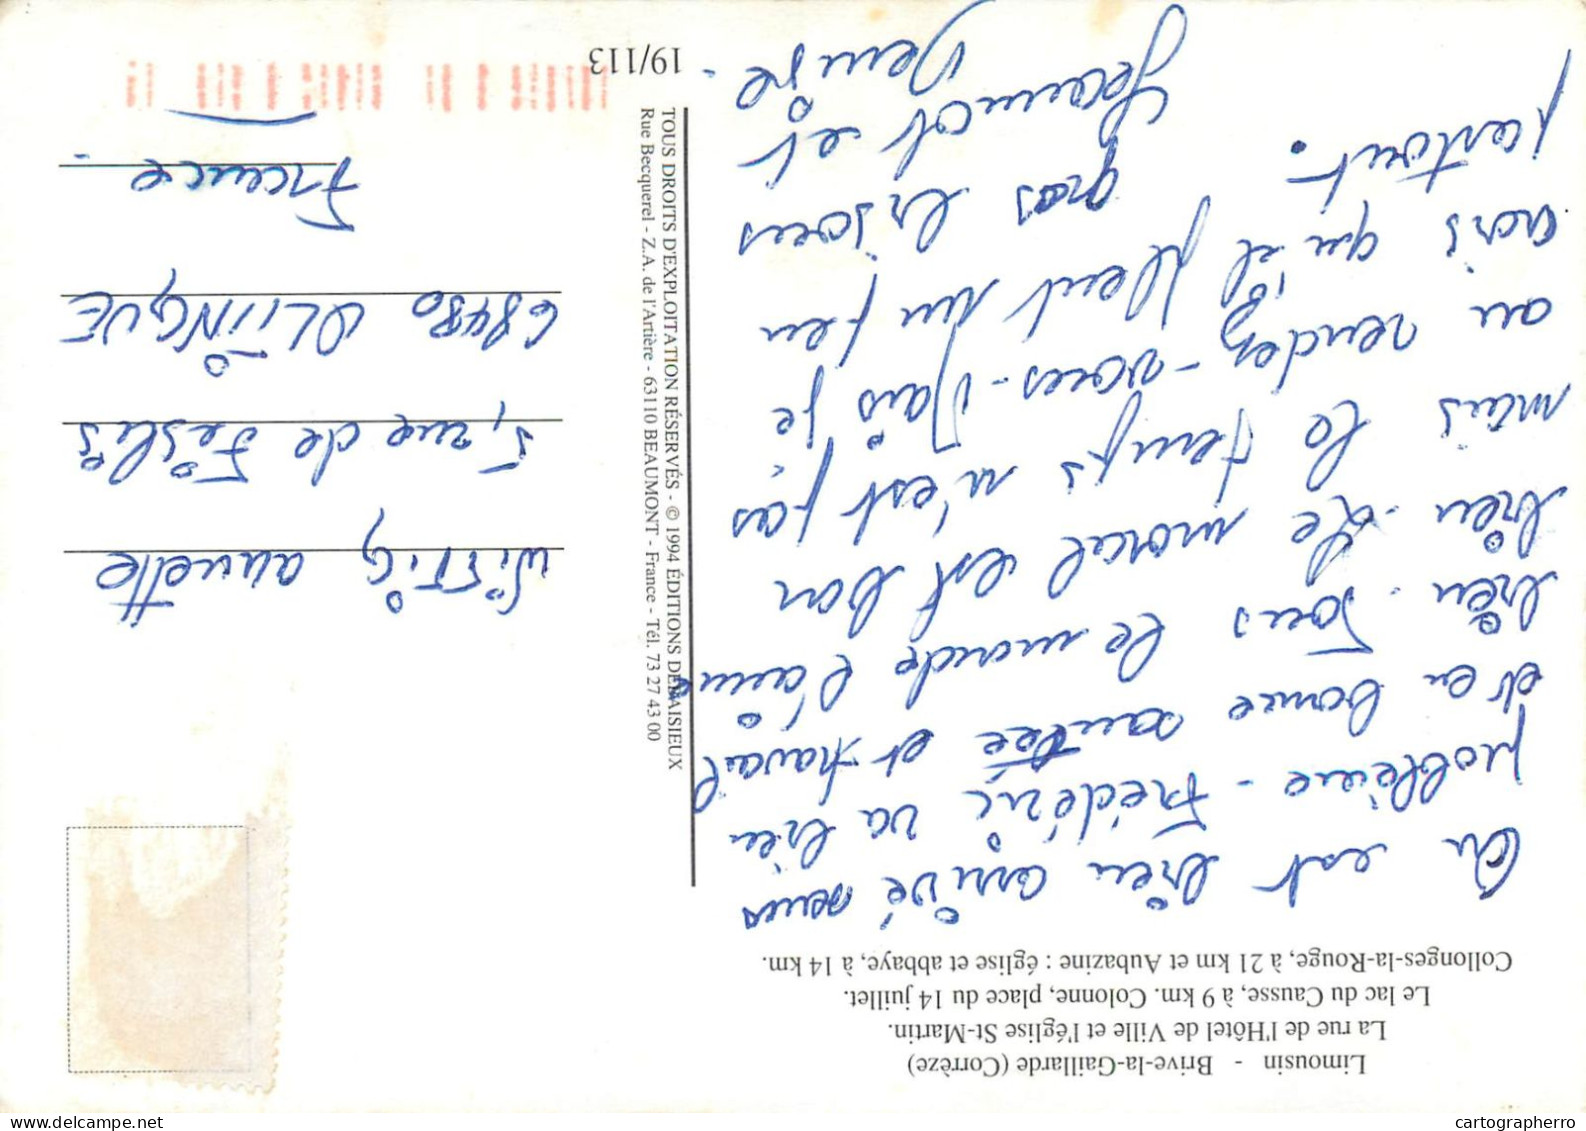 Limousin - Brive-la-Gaillarde (Corrèze)
La rue de l'Hôtel de Ville et l'église St-Martin.
Le lac du Causse, à 9 km. Colonne, place du 14 juillet.
Collonges-la-Rouge, à 21 km et Aubazine : église et abbaye, à 14 km.
On est bien arrivé sans
problème - Frédéric va bien
et en bonne santée et travail
bien. Tous le monde l'aime
bien. Le moral est bon
mais le temps n'est pas
au rendez-vous. Mais je
crois qu'il pleut un peu
partout.
gros bisous
Jeannot et
Denise.
TOUS DROITS D'EXPLOITATION RÉSERVÉS - © 1994 ÉDITIONS DEBAISIEUX
Rue Becquerel - Z.A. de l'Artière - 63110 BEAUMONT - France - Tél. 73 27 43 00
WITTIG annette
5, rue de Feslis
68480 OLTINGUE
France.
19/113
cartographerro